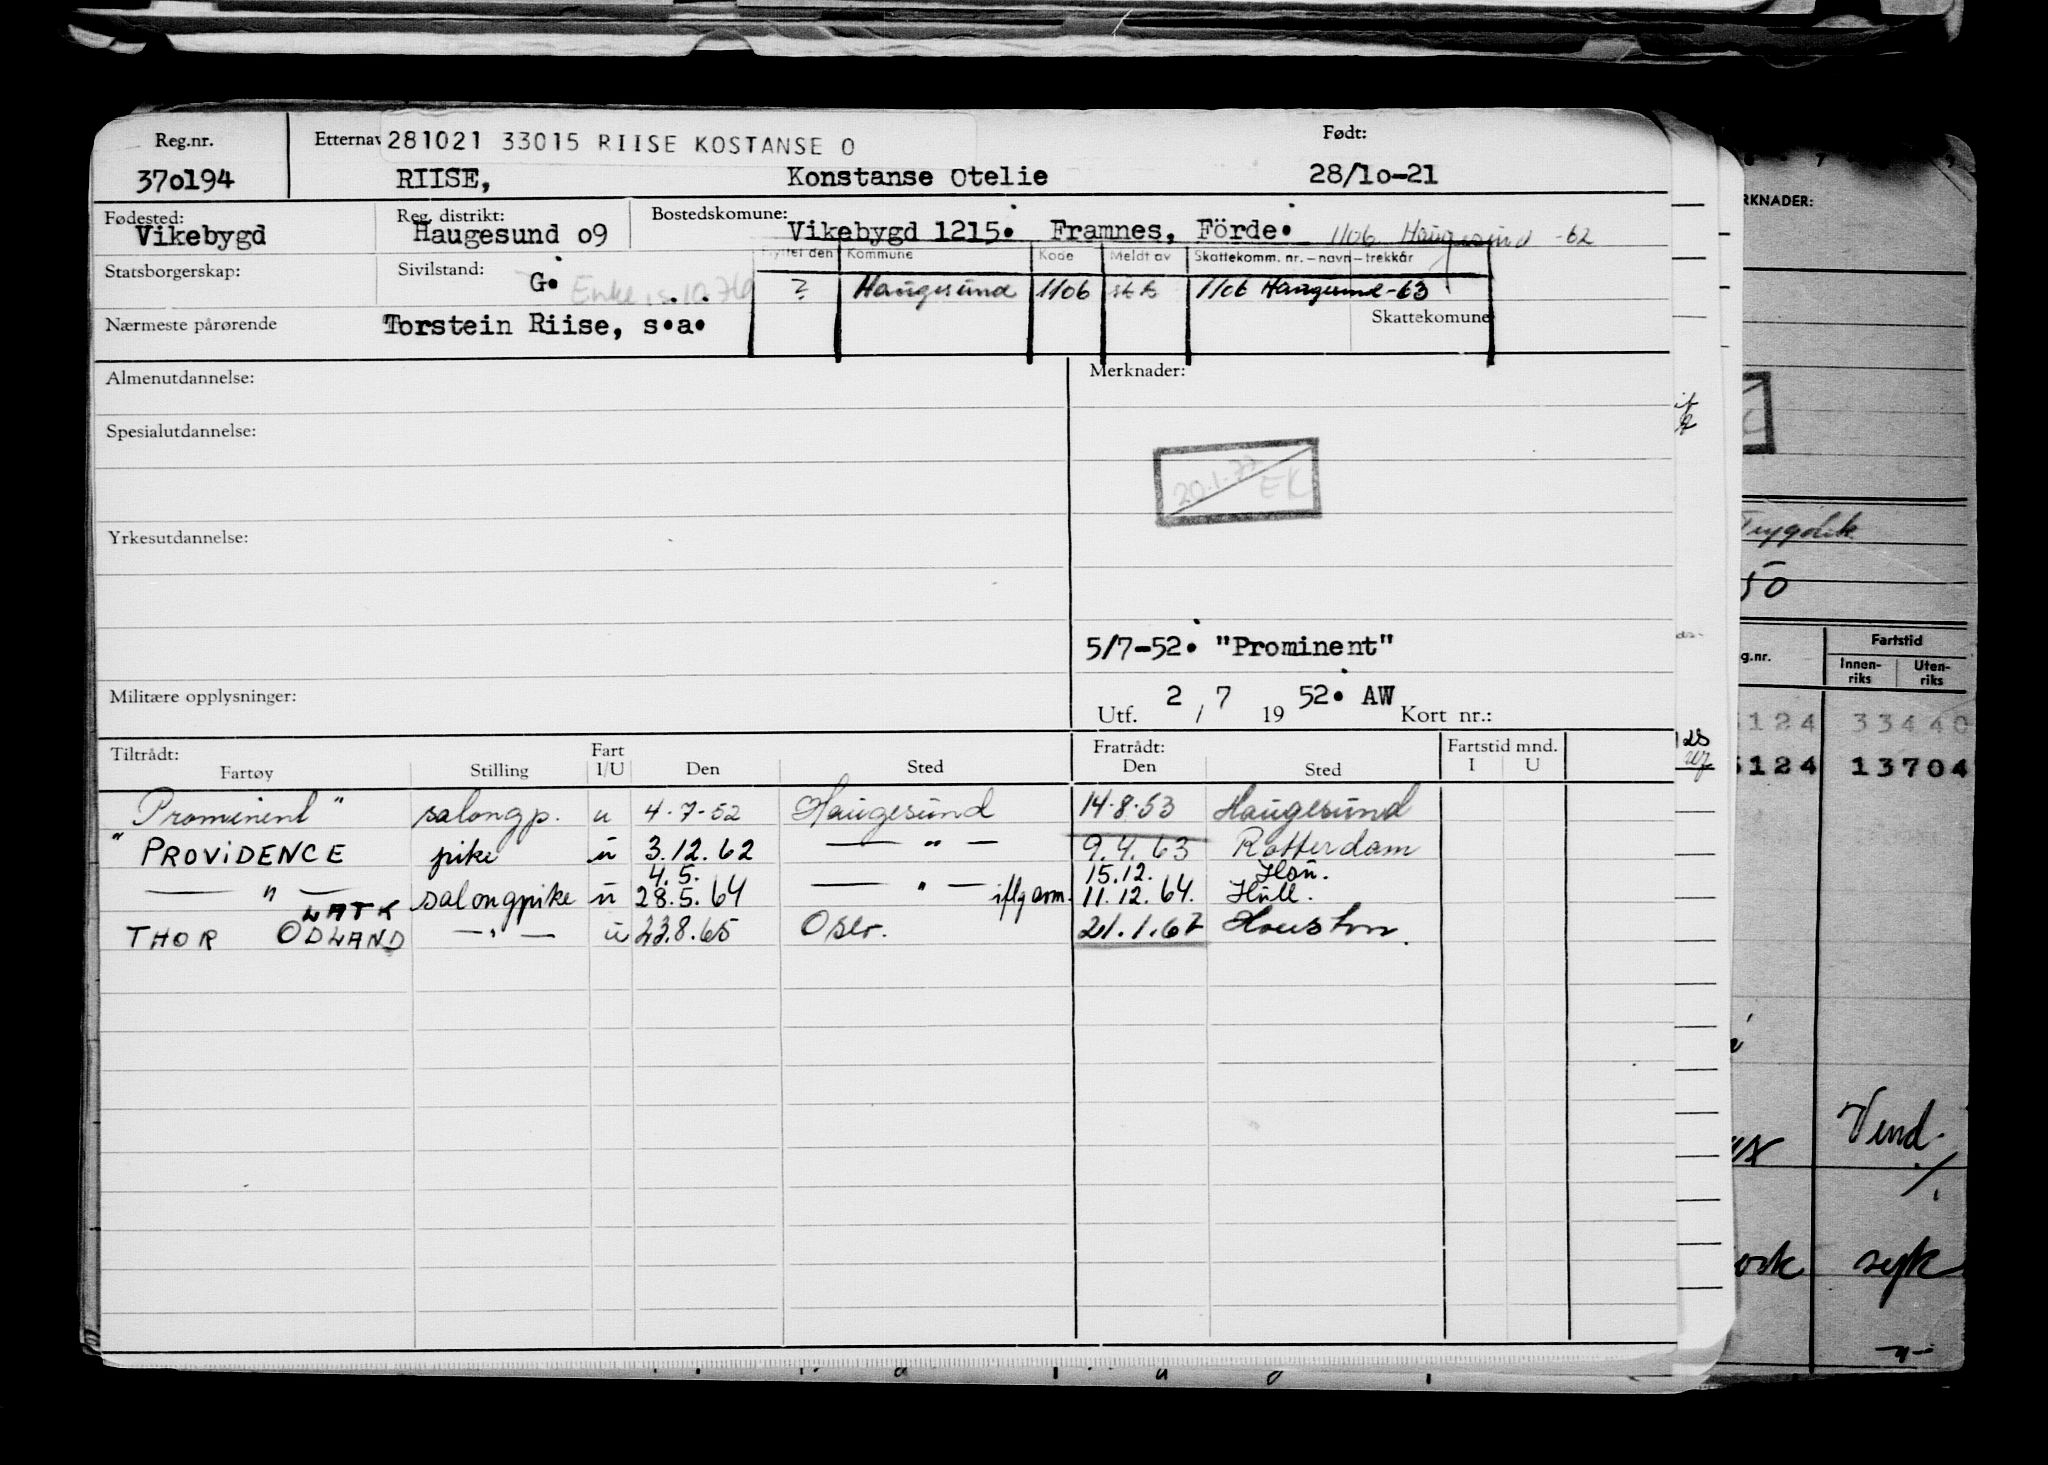 Reg.nr. Etternav 281021 33015 RIISE KOSTANSE O Født:
370194 RIISE, Konstanse Otelie 28/10-21
Fødested: Reg. distrikt: Bostedskomune:
Vikebygd Haugesund 09 Vikebygd 1215. Framnes, Förde. 1106 Haugesund -62
Flyttet den Kommune Kode Meldt av Skattekomm. nr. – navn – trekkår
Statsborgerskap: Sivilstand: G. Enke ? Haugesund 1106 1106 Haugesund-63
Nærmeste pårørende Torstein Riise, s.a. Skattekomune
Almenutdannelse: Merknader:
Spesialutdannelse:
20.1.77 EK
Yrkesutdannelse:
5/7-52. "Prominent"
Militære opplysninger: Utf. 2 / 7 19 52. AW Kort nr.:
Tiltrådt: Fart Fratrådt: Fartstid mnd.
Fartøy Stilling I/U Den Sted Den Sted I U
Prominent " salongp. u 4.7-52 Haugesund 14.8.53 Haugesund
" PROVIDENCE pike u 3.12.62 — " — 9.4.63 Rotterdam
4.5. 15.12. Hou.
— " — salongpike u 28.5.64 — " — iflg arm. 11.12.64. Hull.
LATK
THOR ODLAND — " — u 23.8.65 Oslo. 21.1.67 Houston.
RKNADER:
Trygdek
50
g.nr. Fartstid
Innen-riks Uten-riks
124 33440
5124 13704
Vend
/.
ork syk
—"—